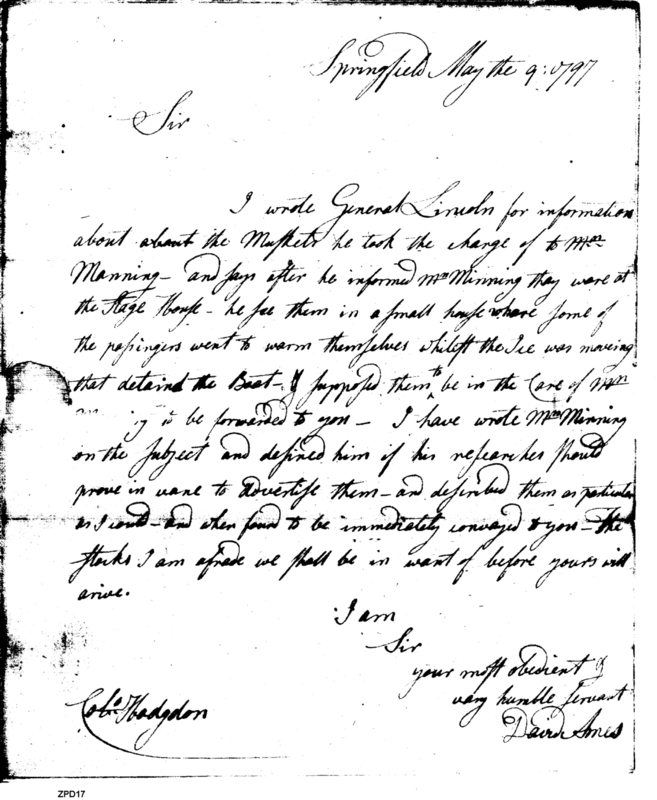 Springfield May the 9: 1797
Sir
I wrote General Lincoln for information
about about the Muskets he took the charge of to Mr
Manning - and says after he informed Mr Minning thay ware at
the Stage House - he see them in a small house whare some of
the passingers went to warm themselves whilest the Ice was moveing
that detaind the Boat - & supposed them to be in the Care of Mr
to be forwarded to you - I have wrote Mr Minning
on the subject and desired him if his researches should
prove in vane to advertise them - and described them as particular
as I could - and when found to be immediately convayed to you - The
stocks I am afrade we shall be in want of before yours will
arive.
I am
Sir
your most obedient &
vary humble servant
David Ames
Colo. Hodgdon
ZPD17